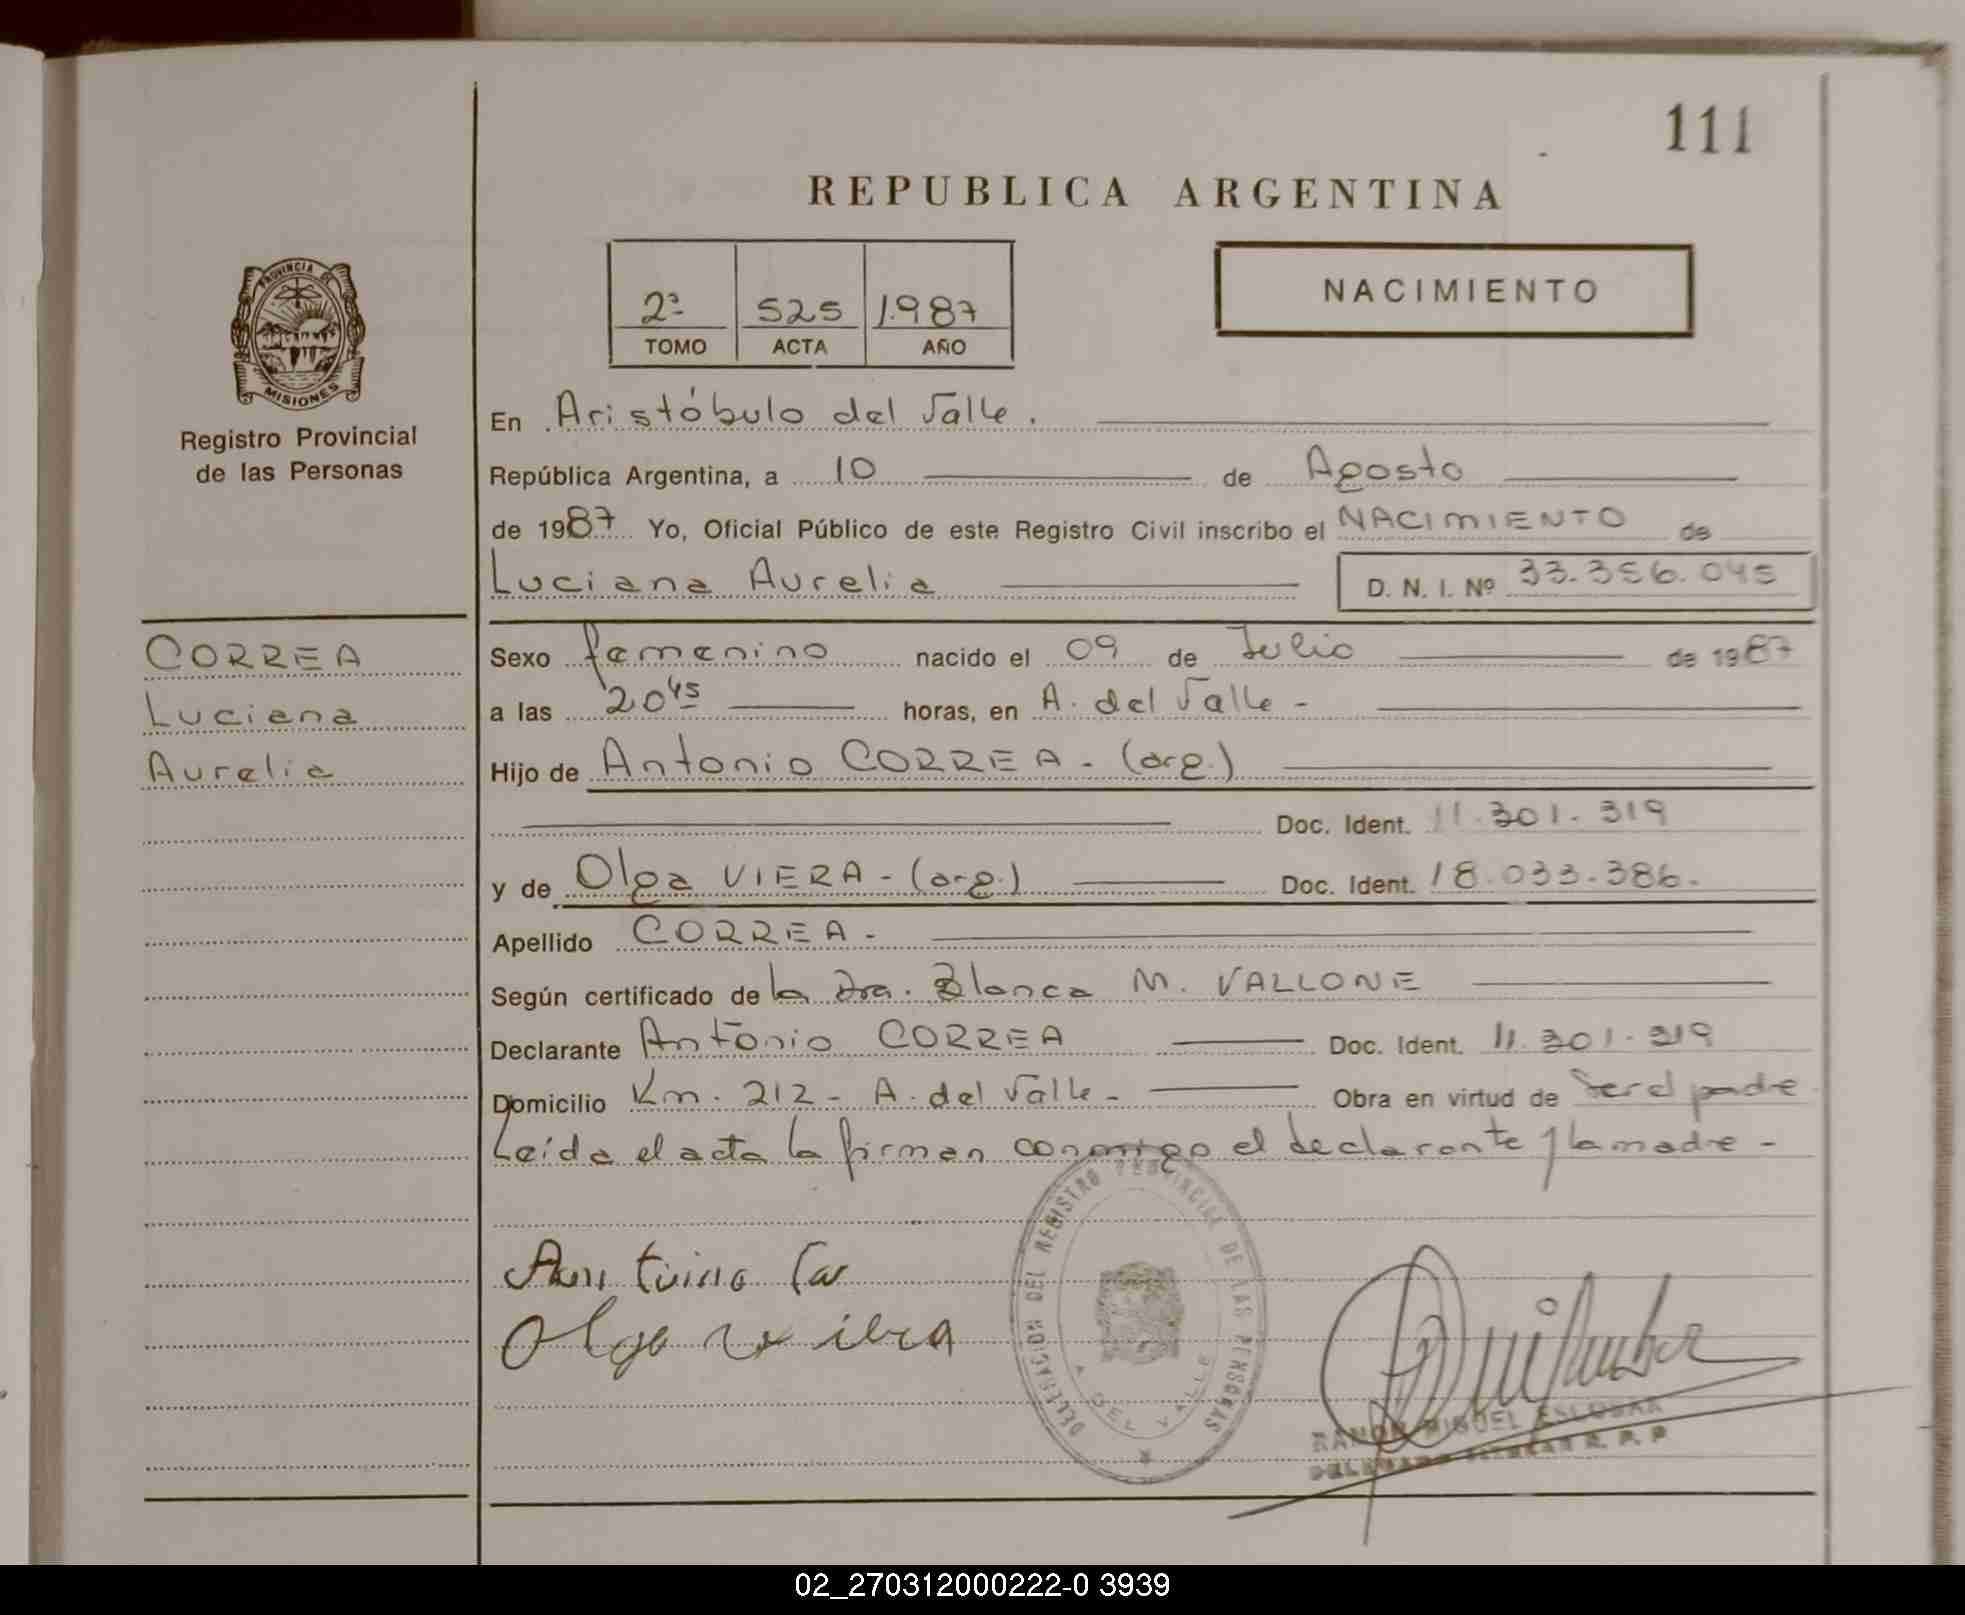 111
REPUBLICA ARGENTINA
2ª 525 1.987
TOMO ACTA AÑO
NACIMIENTO
PROVINCIA DE
MISIONES
Registro Provincial
de las Personas
En Aristóbulo del Valle.
República Argentina, a 10 de Agosto
de 1987 Yo, Oficial Público de este Registro Civil inscribo el NACIMIENTO de
Luciana Aurelia D. N. I. Nº 33.356.045
CORREA
Luciana
Aurelia
Sexo femenino nacido el 09 de Julio de 1987
a las 20 45 horas, en A. del Valle -
Hijo de Antonio CORREA - (arg.)
Doc. Ident. 11.301.319
y de Olga VIERA - (arg.) Doc. Ident. 18.033.386.
Apellido CORREA -
Según certificado de la Dra. Blanca M. VALLONE
Declarante Antonio CORREA Doc. Ident. 11.301.319
Domicilio Km. 212 - A. del Valle - Obra en virtud de ser el padre
Leída el acta la firman conmigo el declarante y la madre -
Olga Vieira
DELEGACION DEL REGISTRO PROVINCIAL DE LAS PERSONAS
A. DEL VALLE
RAMON MIGUEL ESCOBAR
R. P. P
02_270312000222-0 3939